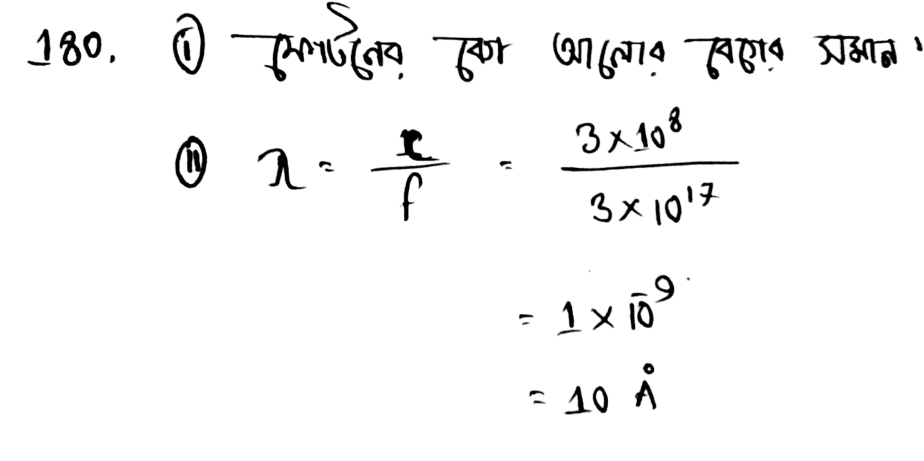 180. (i) ফোটনের বেগ আলোর বেগের সমান।
(ii) λ = c/f = 3×10⁸/3×10¹⁷
= 1×10⁻⁹
= 10 Å